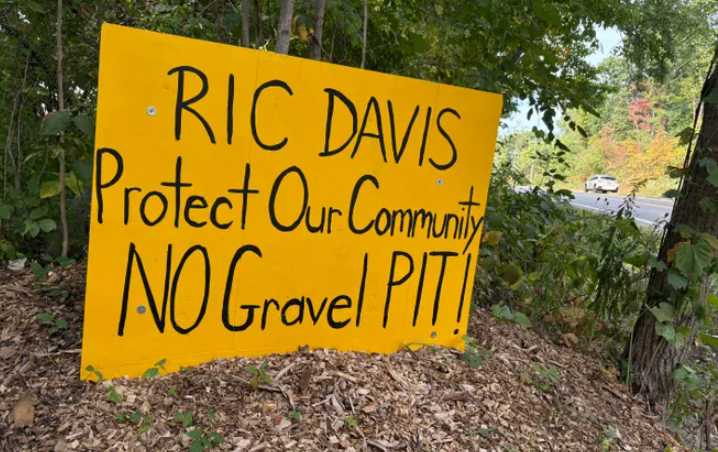 RIC DAVIS
Protect Our Community
NO Gravel PIT!